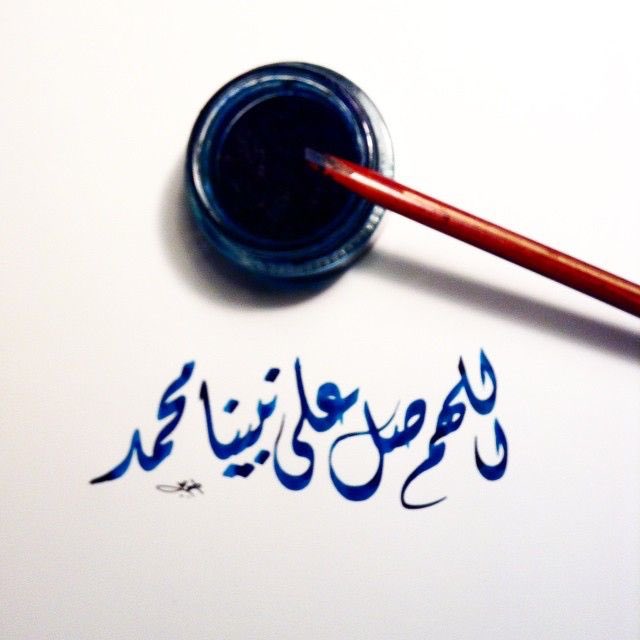 اللهم صل على نبينا محمد